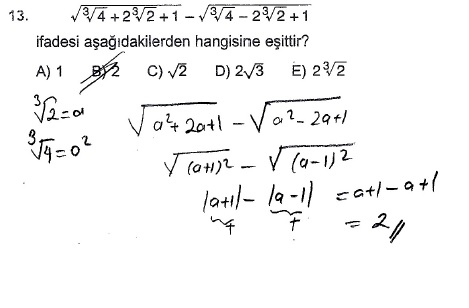 13. √(∛4 + 2∛2 + 1) − √(∛4 − 2∛2 + 1)
ifadesi aşağıdakilerden hangisine eşittir?
A) 1 B) 2 C) √2 D) 2√3 E) 2∛2
∛2 = a
√(a² + 2a + 1) − √(a² − 2a + 1)
∛4 = a²
√(a+1)² − √(a−1)²
|a+1| − |a−1| = a+1 − a+1
+ +
= 2 //